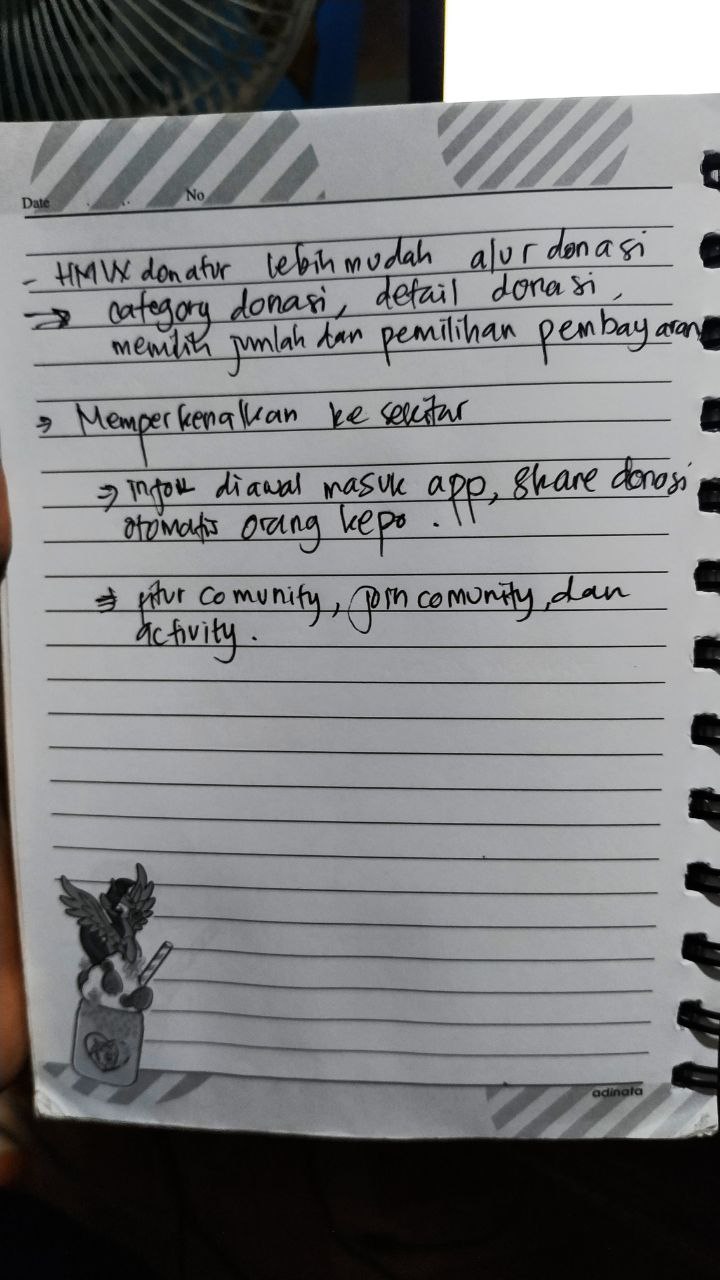 Date No
- HMW donatur lebih mudah alur donasi
→ category donasi, detail donasi,
memilih jumlah dan pemilihan pembayaran
⇒ Memperkenalkan ke sekitar
⇒ diawal masuk app, share donasi
otomatis orang kepo.
⇒ fitur comunity, join comunity, dan
activity.
adinata